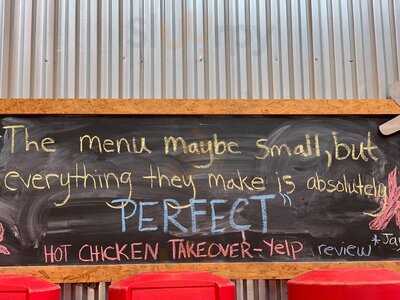 The menu maybe small, but
everything they make is absolutely
PERFECT"
HOT CHICKEN TAKEOVER-Yelp review